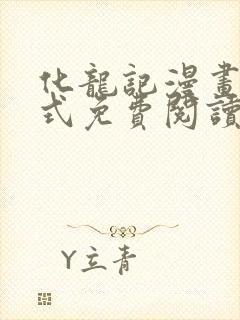 化龍記漫畫
式免費閱讀
Y立青